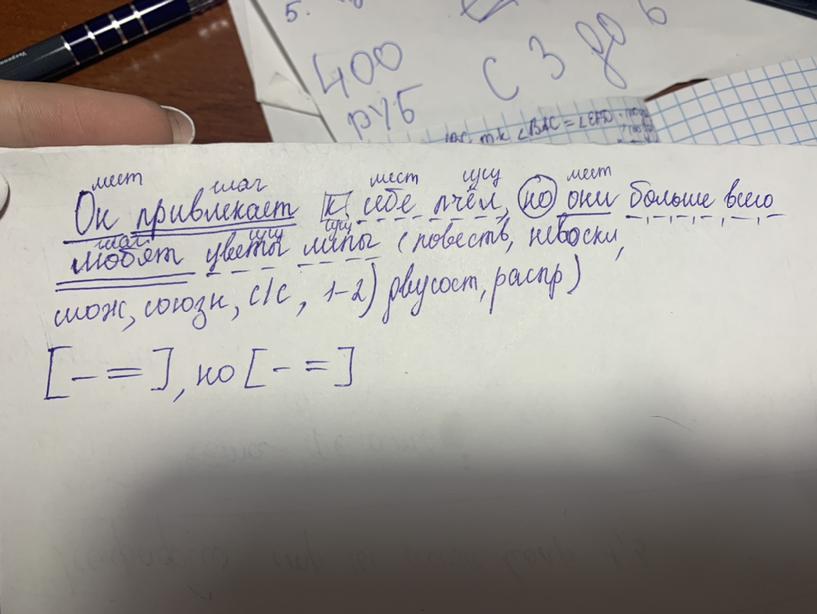 5.
400
руб
с 3 до 6
т.к ∠BAC =
мест глаг мест сущ мест
Он привлекает к себе пчёл, но они больше всего
глаг сущ сущ
любят цветы липы (повеств, невоскл,
слож, союзн, с/с, 1-2) двусост, распр)
[- =], но [- =]